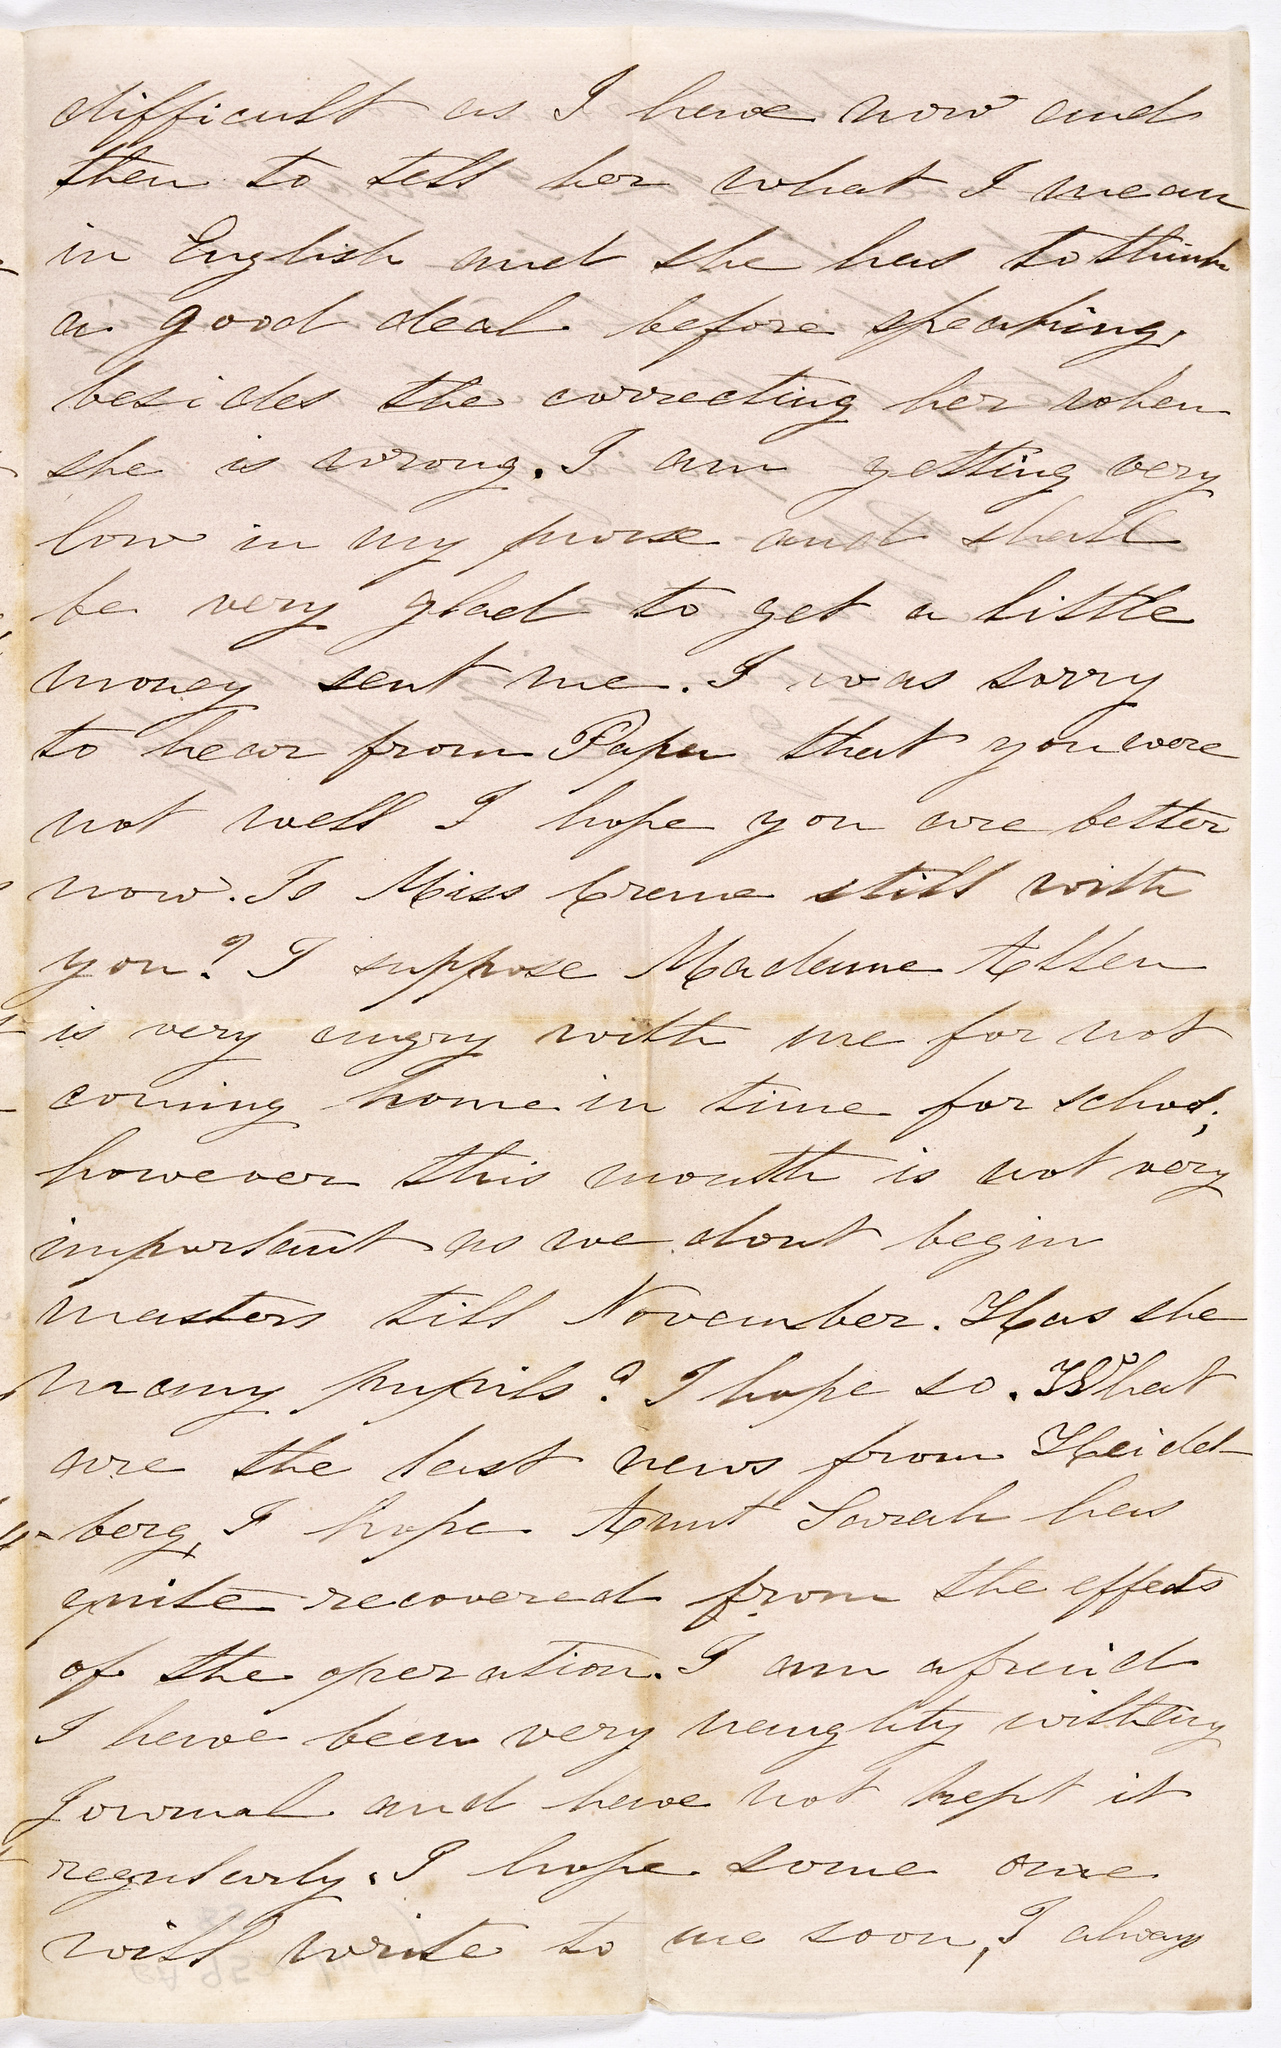 difficult as I have now and
then to tell her what I mean
in English and she has to think
a good deal before speaking,
besides the correcting her when
she is wrong. I am getting very
low in my purse and shall
be very glad to get a little
money sent me. I was sorry
to hear from Papa that you were
not well I hope you are better
now. Is Miss Crene still with
you? I suppose Madame Allen
is very angry with me for not
coming home in time for school;
however this month is not very
important as we dont begin
masters till November. Has she
many pupils? I hope so. What
are the last news from Heidel-
berg, I hope Aunt Sarah has
quite recovered from the effects
of the operation. I am afraid
I have been very naughty with my
Journal and have not kept it
regularly. I hope some one
will write to me soon, I always